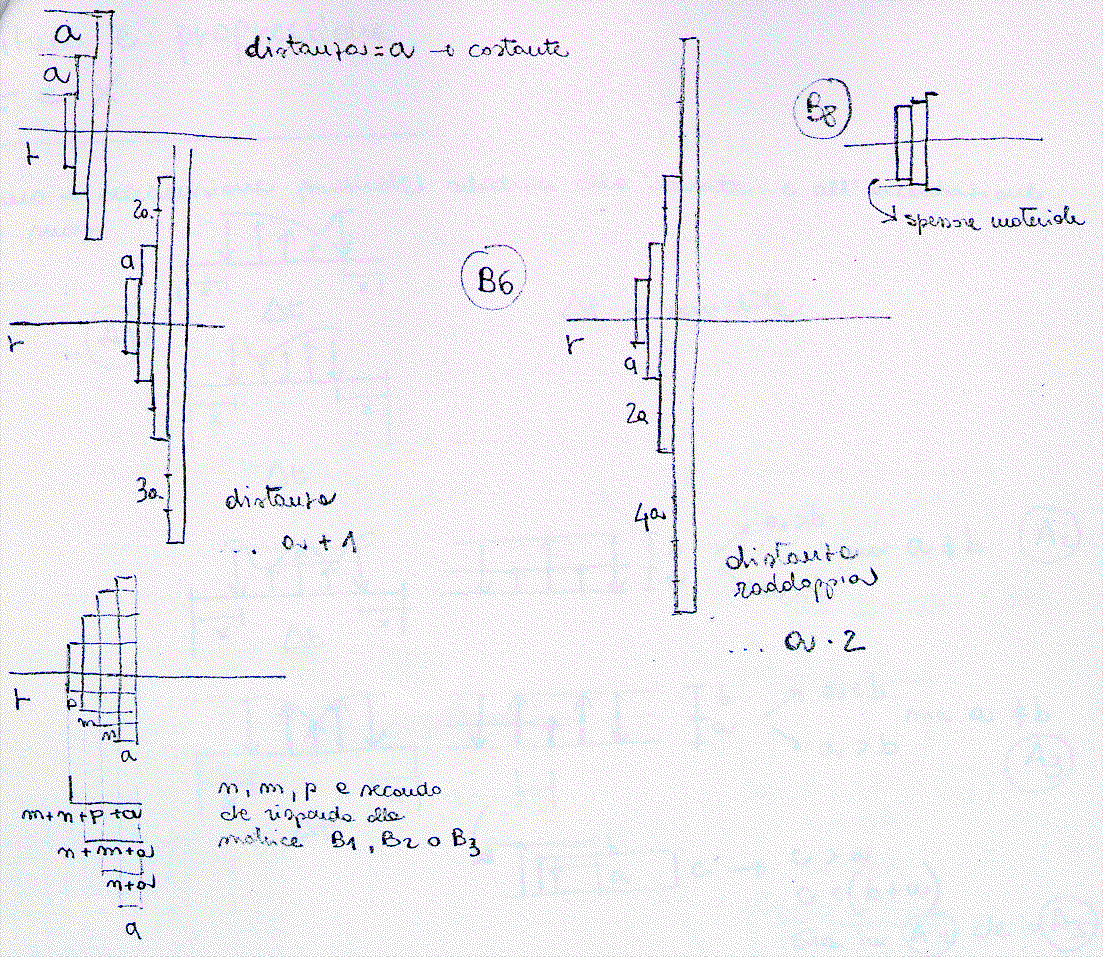 a
distanza = a → costante
a
B8
r
spessore materiale
2a
a
B6
r
r
a
2a
3a
distanza
... a + 1
4a
distanza
raddoppia
... a · 2
r
p
m
n
a
n, m, p e secondo
che risponda alla
m+n+p+a
matrice B1, B2 o B3
n+m+a
n+a
a